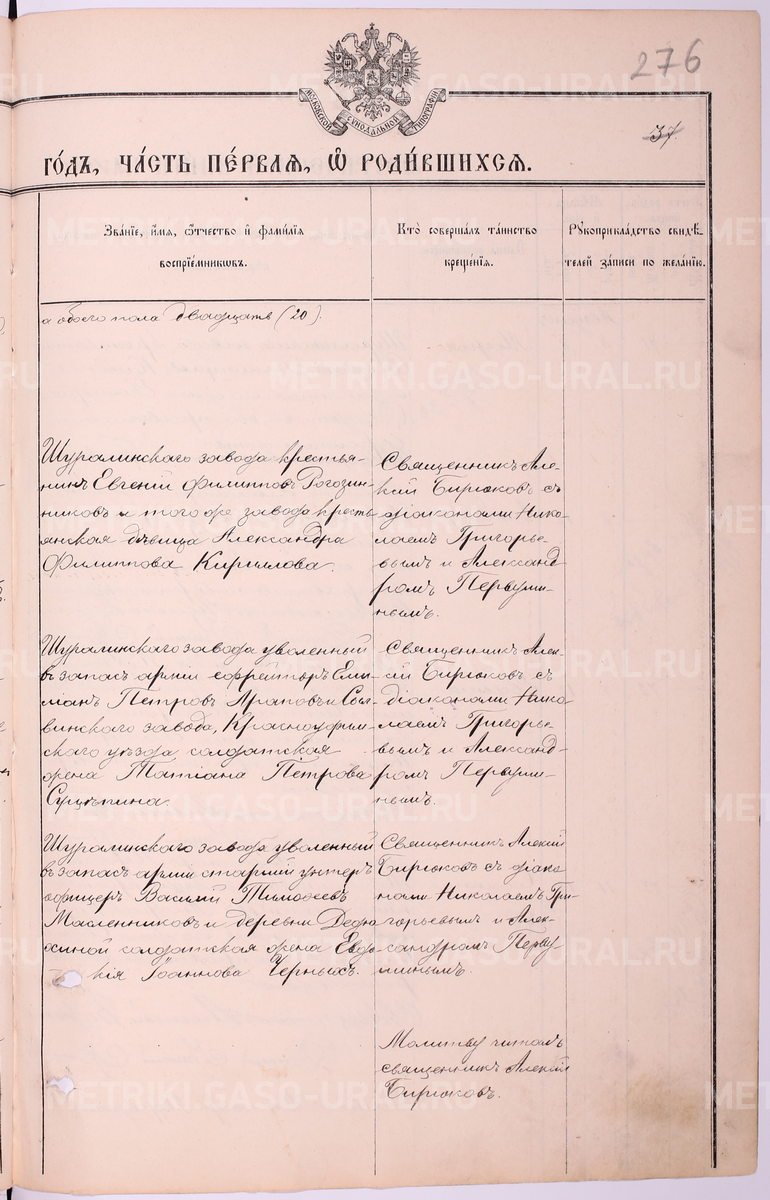 276
37
МОСКОВСКОЙ СѴНОДАЛЬНОЙ ТИПОГРАФІИ
го́дъ, ча́сть пе́рваѧ, ѡ҆ роди́вшихсѧ.
Зва́нїе, и҆́мѧ, ѻ҆́тчество и҆ фами́лїѧ
воспрїе́мникѡвъ.
Кто̀ соверша́лъ та́инство
креще́нїѧ.
Рꙋкоприкла́дство свидѣ́-
телей за́писи по жела́нїю.
а обоего пола двадцать (20).
Шуралинскаго завода крестья-
нинъ Евгеній Филипповъ Рогозин-
никовъ и того же завода кресть-
янская дѣвица Александра
Филиппова Кириллова.
Священникъ Але-
ксій Бирюковъ съ
діаконами Нико-
лаемъ Григорье-
вымъ и Александ-
ромъ Первуши-
нымъ.
Шуралинскаго завода уволенный
въ запасъ арміи ефрейторъ Еми-
ліанъ Петровъ Араповъ и Сыл-
винскаго завода, Красноуфим-
скаго уѣзда солдатская
жена Татіана Петрова
Священникъ Алек-
сій Бирюковъ съ
діаконами Нико-
лаемъ Григорье-
вымъ и Александ-
ромъ Первуши-
нымъ.
Шуралинскаго завода уволенный
въ запасъ арміи старшій унтеръ
офицеръ Василій Тимофеевъ
Масленниковъ и деревни
солдатская жена Евдо-
кія Іоаннова Черныхъ.
Священникъ Алексій
Бирюковъ съ діако-
нами Николаемъ Гри-
горьевымъ и Алек-
сандромъ Перву-
шинымъ.
Молитву читалъ
священникъ Алексій
Бирюковъ.
METRIKI.GASO-URAL.RU